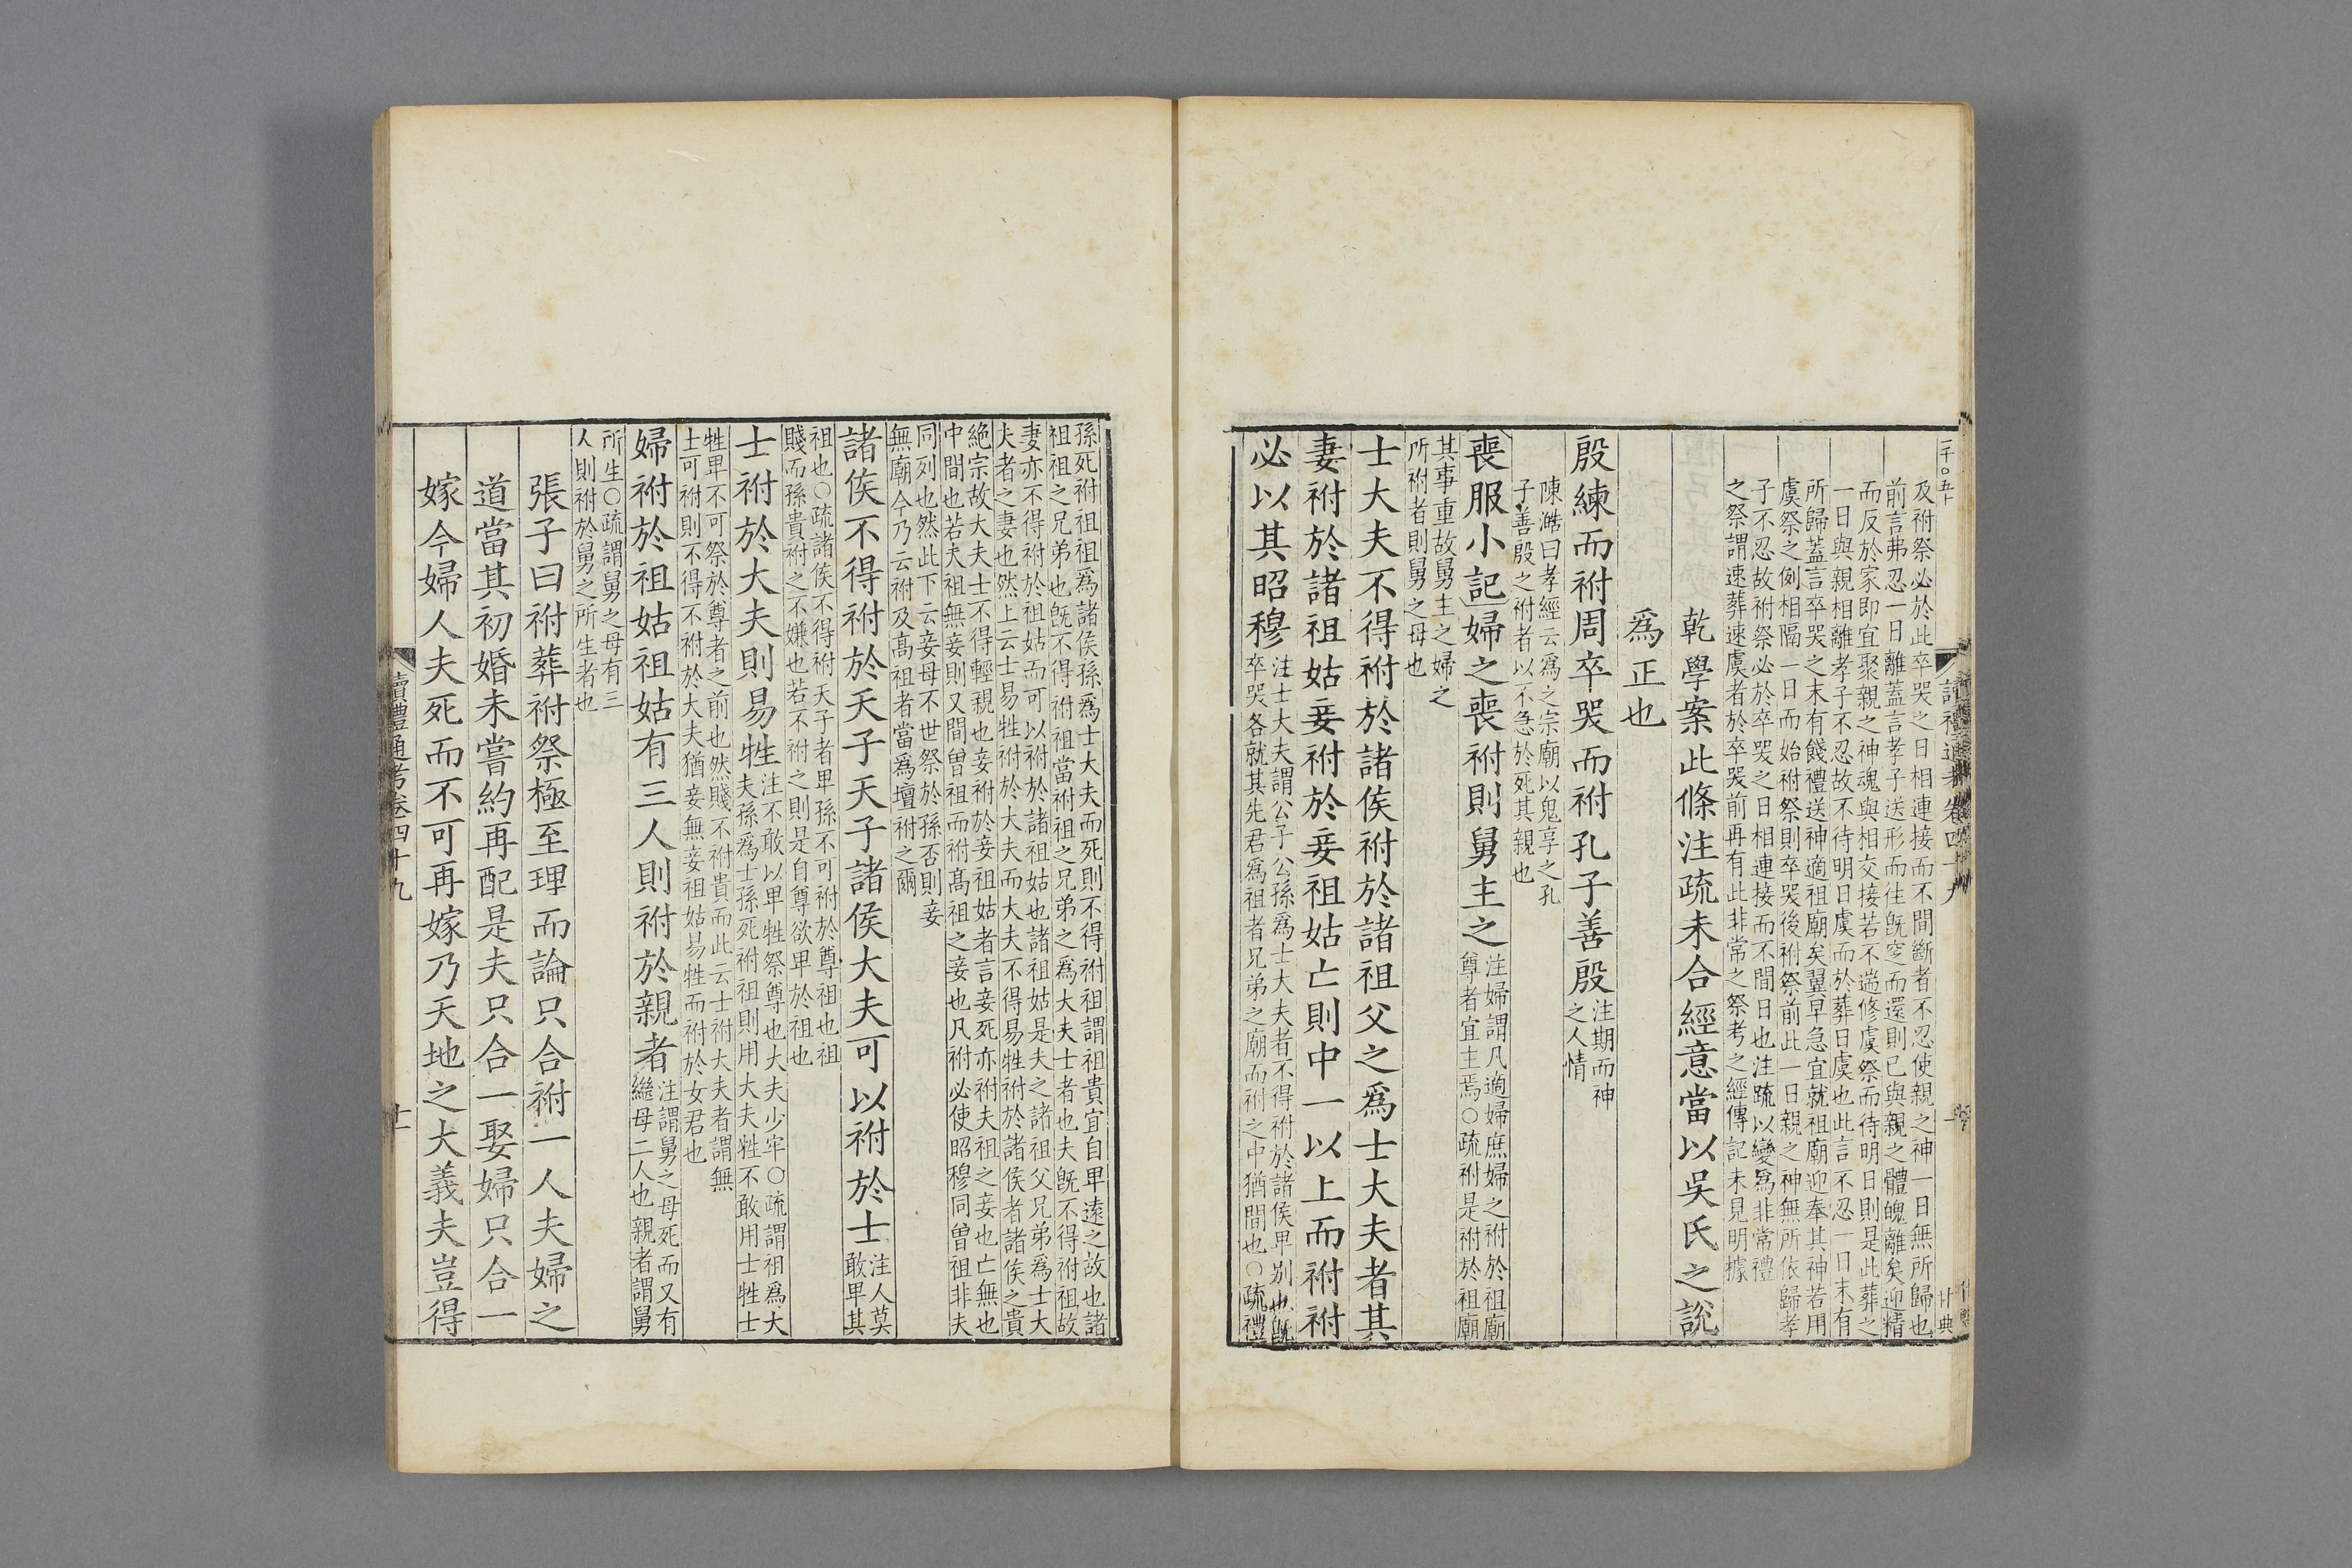 及祔祭必於此卒哭之日相連接而不間斷者不忍使親之神一日無所歸也
前言弗忍一日離蓋言孝子送形而往旣窆而還則已與親之體魄離矣迎精
而反於家即宜聚親之神魂與相交接若不遄修虞祭而待明日則是此葬之
一日與親相離孝子不忍故不待明日虞而於葬日虞也此言不忍一日末有
所歸蓋言卒哭之末有餞禮送神適祖廟矣翼早急宜就祖廟迎奉其神若用
虞祭之例相隔一日而始祔祭則卒哭後祔祭前此一日親之神無所依歸孝
子不忍故祔祭必於卒哭之日相連接而不間日也注疏以變爲非常禮
之祭謂速葬速虞者於卒哭前再有此非常之祭考之經傳記未見明據
乾學案此條注疏未合經意當以吳氏之說
爲正也
殷練而祔周卒哭而祔孔子善殷注期而神
之人情
陳澔曰孝經云爲之宗廟以鬼享之孔
子善殷之祔者以不急於死其親也
喪服小記婦之喪祔則舅主之注婦謂凡適婦庶婦之祔於祖廟
尊者宜主焉○疏祔是祔於祖廟
其事重故舅主之婦之
所祔者則舅之母也
士大夫不得祔於諸侯祔於諸祖父之爲士大夫者其
妻祔於諸祖姑妾祔於妾祖姑亡則中一以上而祔祔
必以其昭穆注士大夫謂公子公孫爲士大夫者不得祔於諸侯卑别也旣
卒哭各就其先君爲祖者兄弟之廟而祔之中猶間也○疏禮
孫死祔祖祖爲諸侯孫爲士大夫而死則不得祔祖謂祖貴宜自卑遠之故也諸
祖祖之兄弟也旣不得祔祖當祔祖之兄弟之爲大夫士者也夫旣不得祔祖故
妻亦不得祔於祖姑而可以祔於諸祖姑也諸祖姑是夫之諸祖父兄弟爲士大
夫者之妻也然上云士易牲祔於大夫而大夫不得易牲祔於諸侯者諸侯之貴
絶宗故大夫士不得輕親也妾祔於妾祖姑者言妾死亦祔夫祖之妾也亡無也
中間也若夫祖無妾則又間曾祖而祔高祖之妾也凡祔必使昭穆同曾祖非夫
同列也然此下云妾母不世祭於孫否則妾
無廟今乃云祔及高祖者當爲壇祔之爾
諸侯不得祔於天子天子諸侯大夫可以祔於士注人莫
敢卑其
祖也○疏諸侯不得祔天子者卑孫不可祔於尊祖也祖
賤而孫貴祔之不嫌也若不祔之則是自尊欲卑於祖也
士祔於大夫則易牲注不敢以卑牲祭尊也大夫少牢○疏謂祖爲大
夫孫爲士孫死祔祖則用大夫牲不敢用士牲士
牲卑不可祭於尊者之前也然賤不祔貴而此云士祔大夫者謂無
士可祔則不得不祔於大夫猶妾無妾祖姑易牲而祔於女君也
婦祔於祖姑祖姑有三人則祔於親者注謂舅之母死而又有
繼母二人也親者謂舅
所生○疏謂舅之母有三
人則祔於舅之所生者也
張子曰祔葬祔祭極至理而論只合祔一人夫婦之
道當其初婚未嘗約再配是夫只合一娶婦只合一
嫁今婦人夫死而不可再嫁乃天地之大義夫豈得
讀禮通考卷四十九
十一